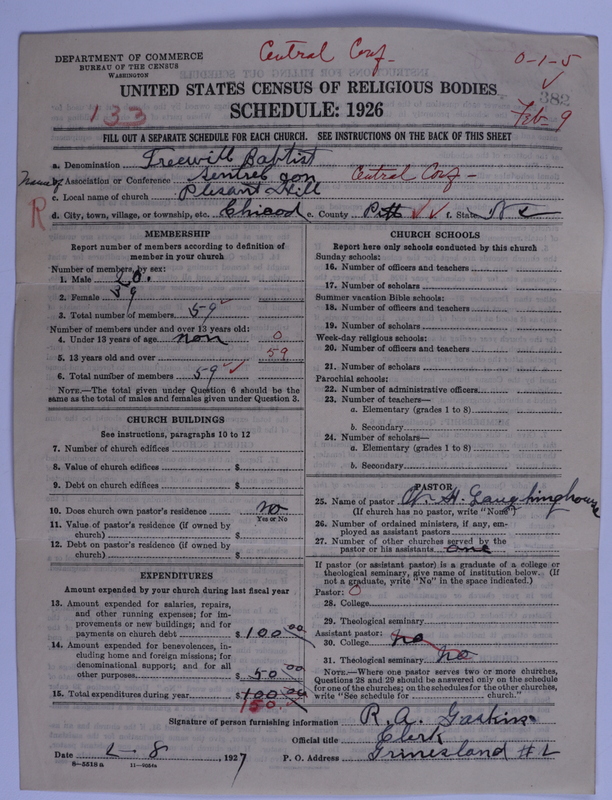 DEPARTMENT OF COMMERCE
BUREAU OF THE CENSUS
WASHINGTON
Central Conf-
0-1-5
UNITED STATES CENSUS OF RELIGIOUS BODIES
382
133
SCHEDULE: 1926
Feb 9
FILL OUT A SEPARATE SCHEDULE FOR EACH CHURCH. SEE INSTRUCTIONS ON THE BACK OF THIS SHEET
a. Denomination Freewill Baptist
b. Association or Conference Sentrel Con Central Conf-
R c. Local name of church Plesant Hill
d. City, town, village, or township, etc. Chicod e. County Pitt f. State N C
MEMBERSHIP
Report number of members according to definition of member in your church
Number of members by sex:
1. Male 20.
2. Female 39
3. Total number of members 59
Number of members under and over 13 years old:
4. Under 13 years of age non 0
5. 13 years old and over 59
6. Total number of members 59
NOTE.—The total given under Question 6 should be the same as the total of males and females given under Question 3.
CHURCH BUILDINGS
See instructions, paragraphs 10 to 12
7. Number of church edifices
8. Value of church edifices $
9. Debt on church edifices $
10. Does church own pastor's residence no
Yes or No
11. Value of pastor's residence (if owned by church) $
12. Debt on pastor's residence (if owned by church) $
EXPENDITURES
Amount expended by your church during last fiscal year
13. Amount expended for salaries, repairs, and other running expenses; for improvements or new buildings; and for payments on church debt $ 100 00
14. Amount expended for benevolences, including home and foreign missions; for denominational support; and for all other purposes $ 50 00
15. Total expenditures during year $ 100 00
150
CHURCH SCHOOLS
Report here only schools conducted by this church
Sunday schools:
16. Number of officers and teachers
17. Number of scholars
Summer vacation Bible schools:
18. Number of officers and teachers
19. Number of scholars
Week-day religious schools:
20. Number of officers and teachers
21. Number of scholars
Parochial schools:
22. Number of administrative officers
23. Number of teachers—
a. Elementary (grades 1 to 8)
b. Secondary
24. Number of scholars—
a. Elementary (grades 1 to 8)
b. Secondary
PASTOR
25. Name of pastor W. H. Laughinghouse
(If church has no pastor, write "None")
26. Number of ordained ministers, if any, employed as assistant pastors
27. Number of other churches served by the pastor or his assistants one
If pastor (or assistant pastor) is a graduate of a college or theological seminary, give name of institution below. (If not a graduate, write "No" in the space indicated.)
Pastor: 0
28. College
29. Theological seminary
Assistant pastor:
30. College no
31. Theological seminary no
NOTE.—Where one pastor serves two or more churches, Questions 28 and 29 should be answered only on the schedule for one of the churches; on the schedules for the other churches, write "See schedule for church."
Signature of person furnishing information R. A. Gaskins
Official title Clerk
Date 2-8, 1927 P. O. Address Grimesland # 2
8-5518a 11-9054a